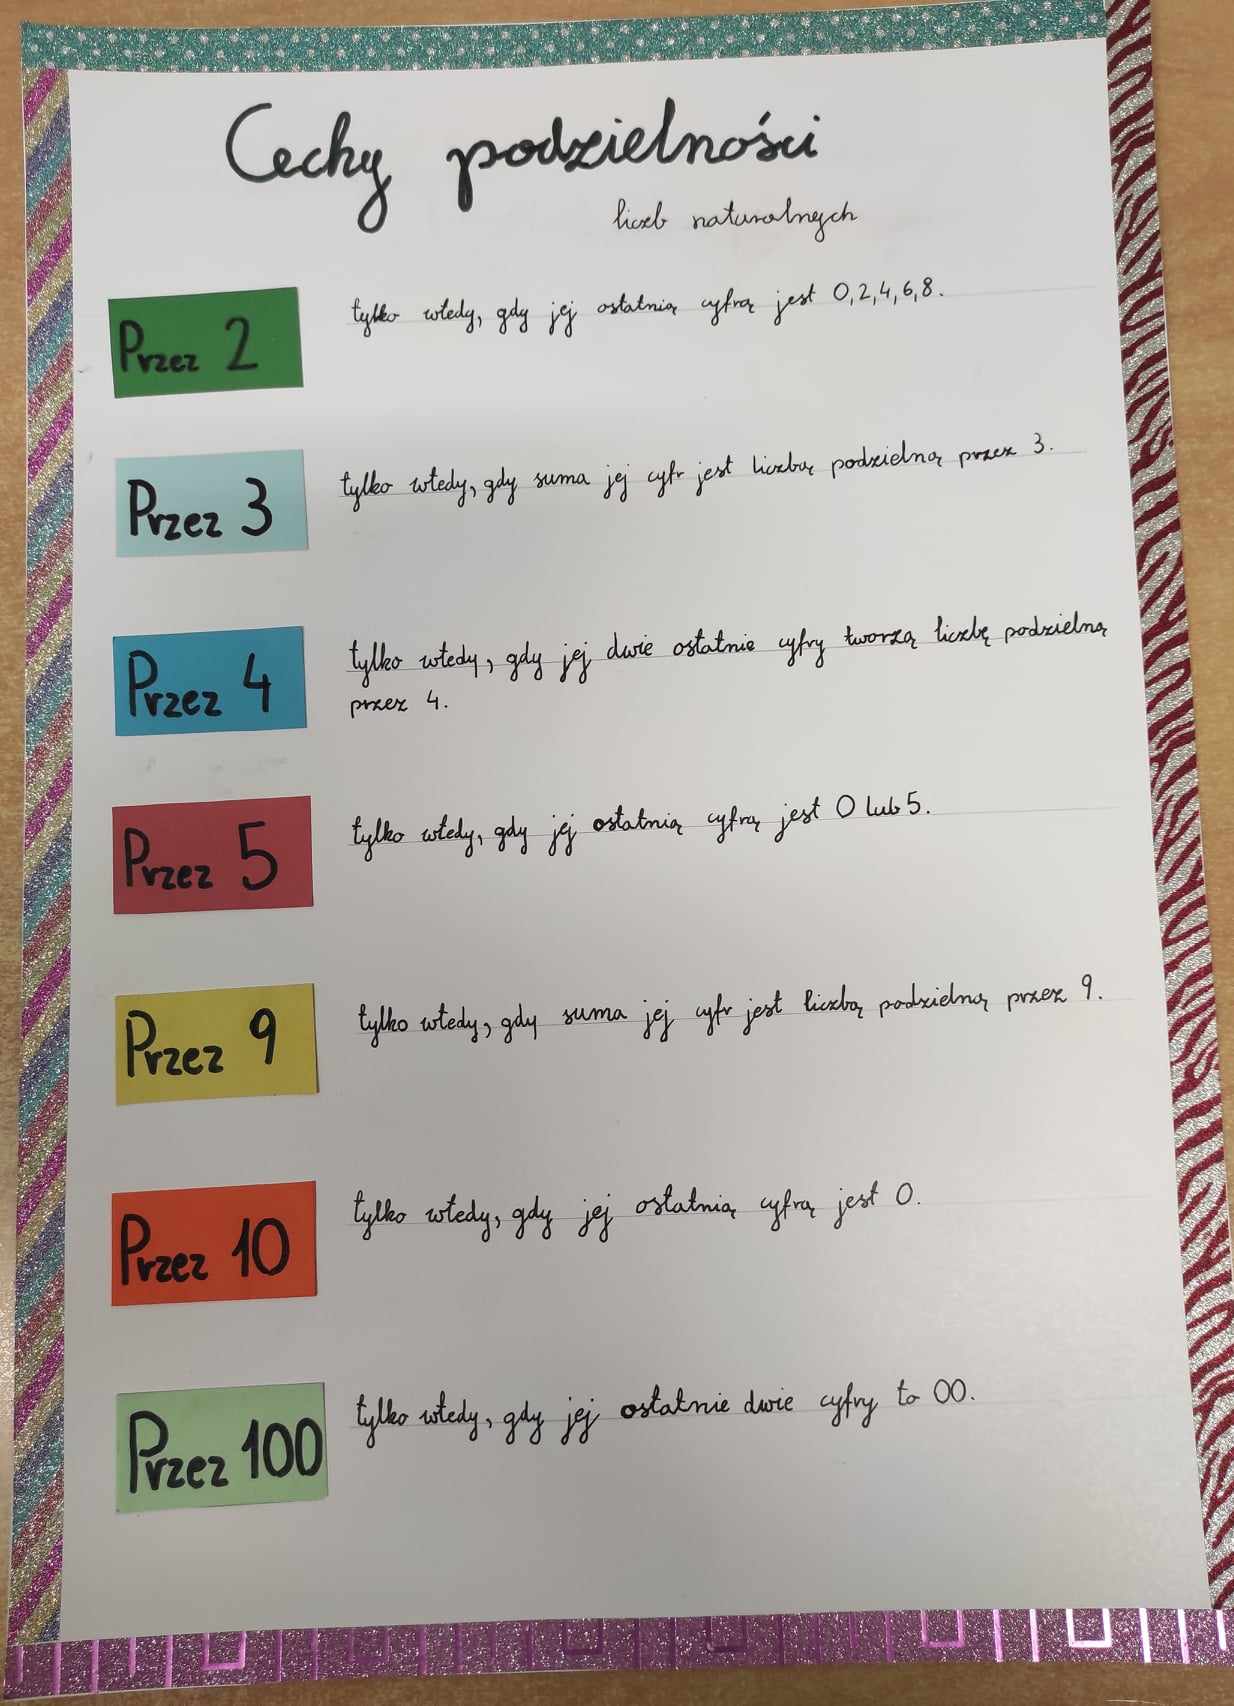 Cechy podzielności
liczb naturalnych
Przez 2
tylko wtedy, gdy jej ostatnią cyfrą jest 0,2,4,6,8.
Przez 3
tylko wtedy, gdy suma jej cyfr jest liczbą podzielną przez 3.
Przez 4
tylko wtedy, gdy jej dwie ostatnie cyfry tworzą liczbę podzielną
przez 4.
Przez 5
tylko wtedy, gdy jej ostatnią cyfrą jest 0 lub 5.
Przez 9
tylko wtedy, gdy suma jej cyfr jest liczbą podzielną przez 9.
Przez 10
tylko wtedy, gdy jej ostatnią cyfrą jest 0.
Przez 100
tylko wtedy, gdy jej ostatnie dwie cyfry to 00.